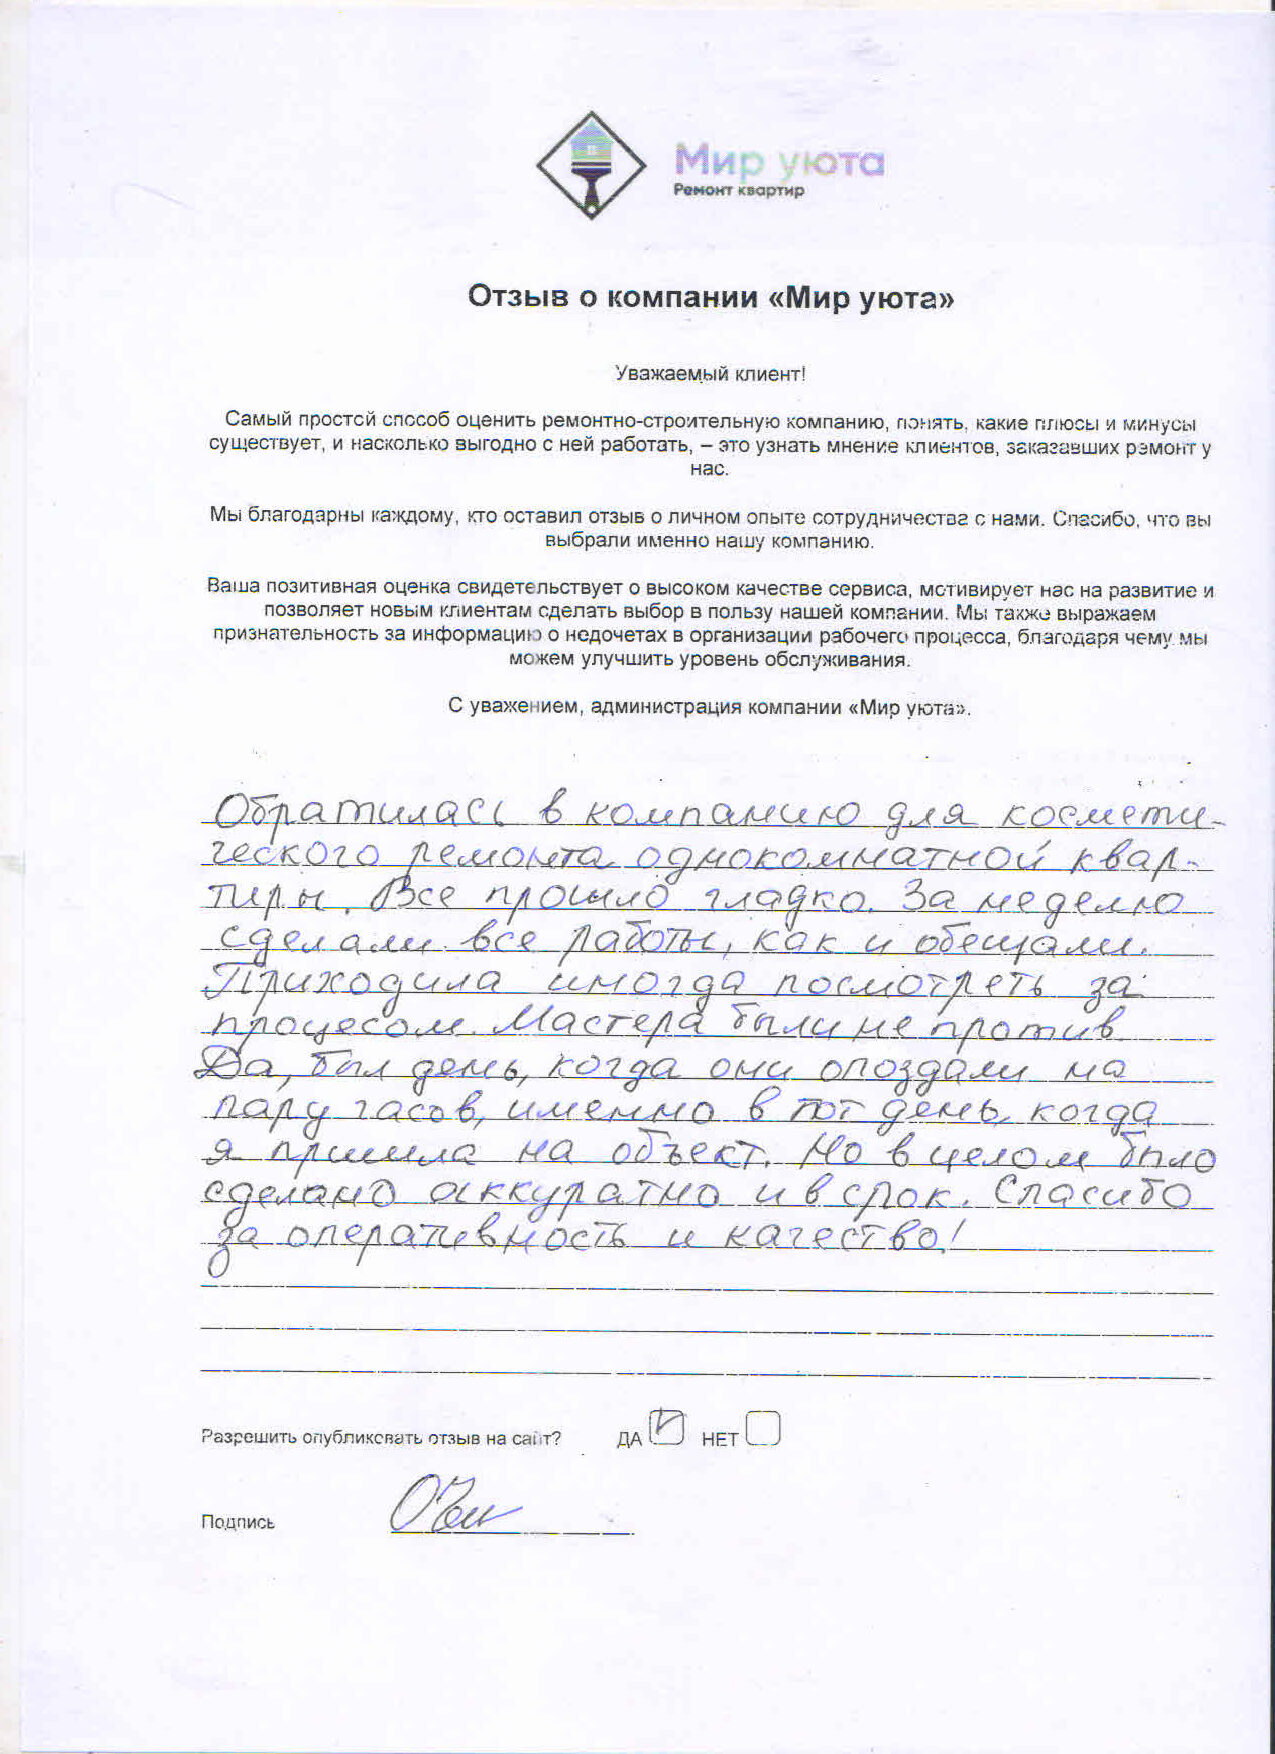 Мир уюта
Ремонт квартир
Отзыв о компании «Мир уюта»
Уважаемый клиент!
Самый простой способ оценить ремонтно-строительную компанию, понять, какие плюсы и минусы
существует, и насколько выгодно с ней работать, – это узнать мнение клиентов, заказавших ремонт у
нас.
Мы благодарны каждому, кто оставил отзыв о личном опыте сотрудничества с нами. Спасибо, что вы
выбрали именно нашу компанию.
Ваша позитивная оценка свидетельствует о высоком качестве сервиса, мотивирует нас на развитие и
позволяет новым клиентам сделать выбор в пользу нашей компании. Мы также выражаем
признательность за информацию о недочетах в организации рабочего процесса, благодаря чему мы
можем улучшить уровень обслуживания.
С уважением, администрация компании «Мир уюта».
Обратилась в компанию для космети-
ческого ремонта однокомнатной квар-
тиры. Все прошло гладко. За неделю
сделали все работы, как и обещали.
Приходила иногда посмотреть за
процесом. Мастера были не против.
Да, был день, когда они опоздали на
пару часов, именно в тот день, когда
я пришла на объект. Но в целом было
сделано аккуратно и в срок. Спасибо
за оперативность и качество!
Разрешить опубликовать отзыв на сайт? ДА НЕТ
Подпись